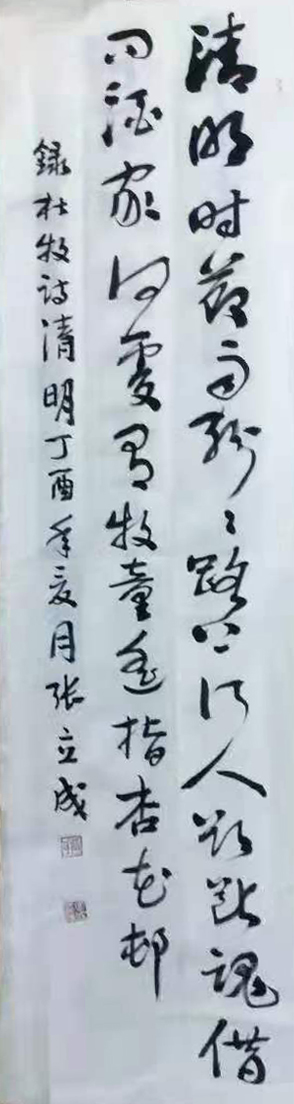 清明时节雨纷纷路上行人欲断魂借
问酒家何处有牧童遥指杏花邨
録杜牧诗清明丁酉年夏月张立成